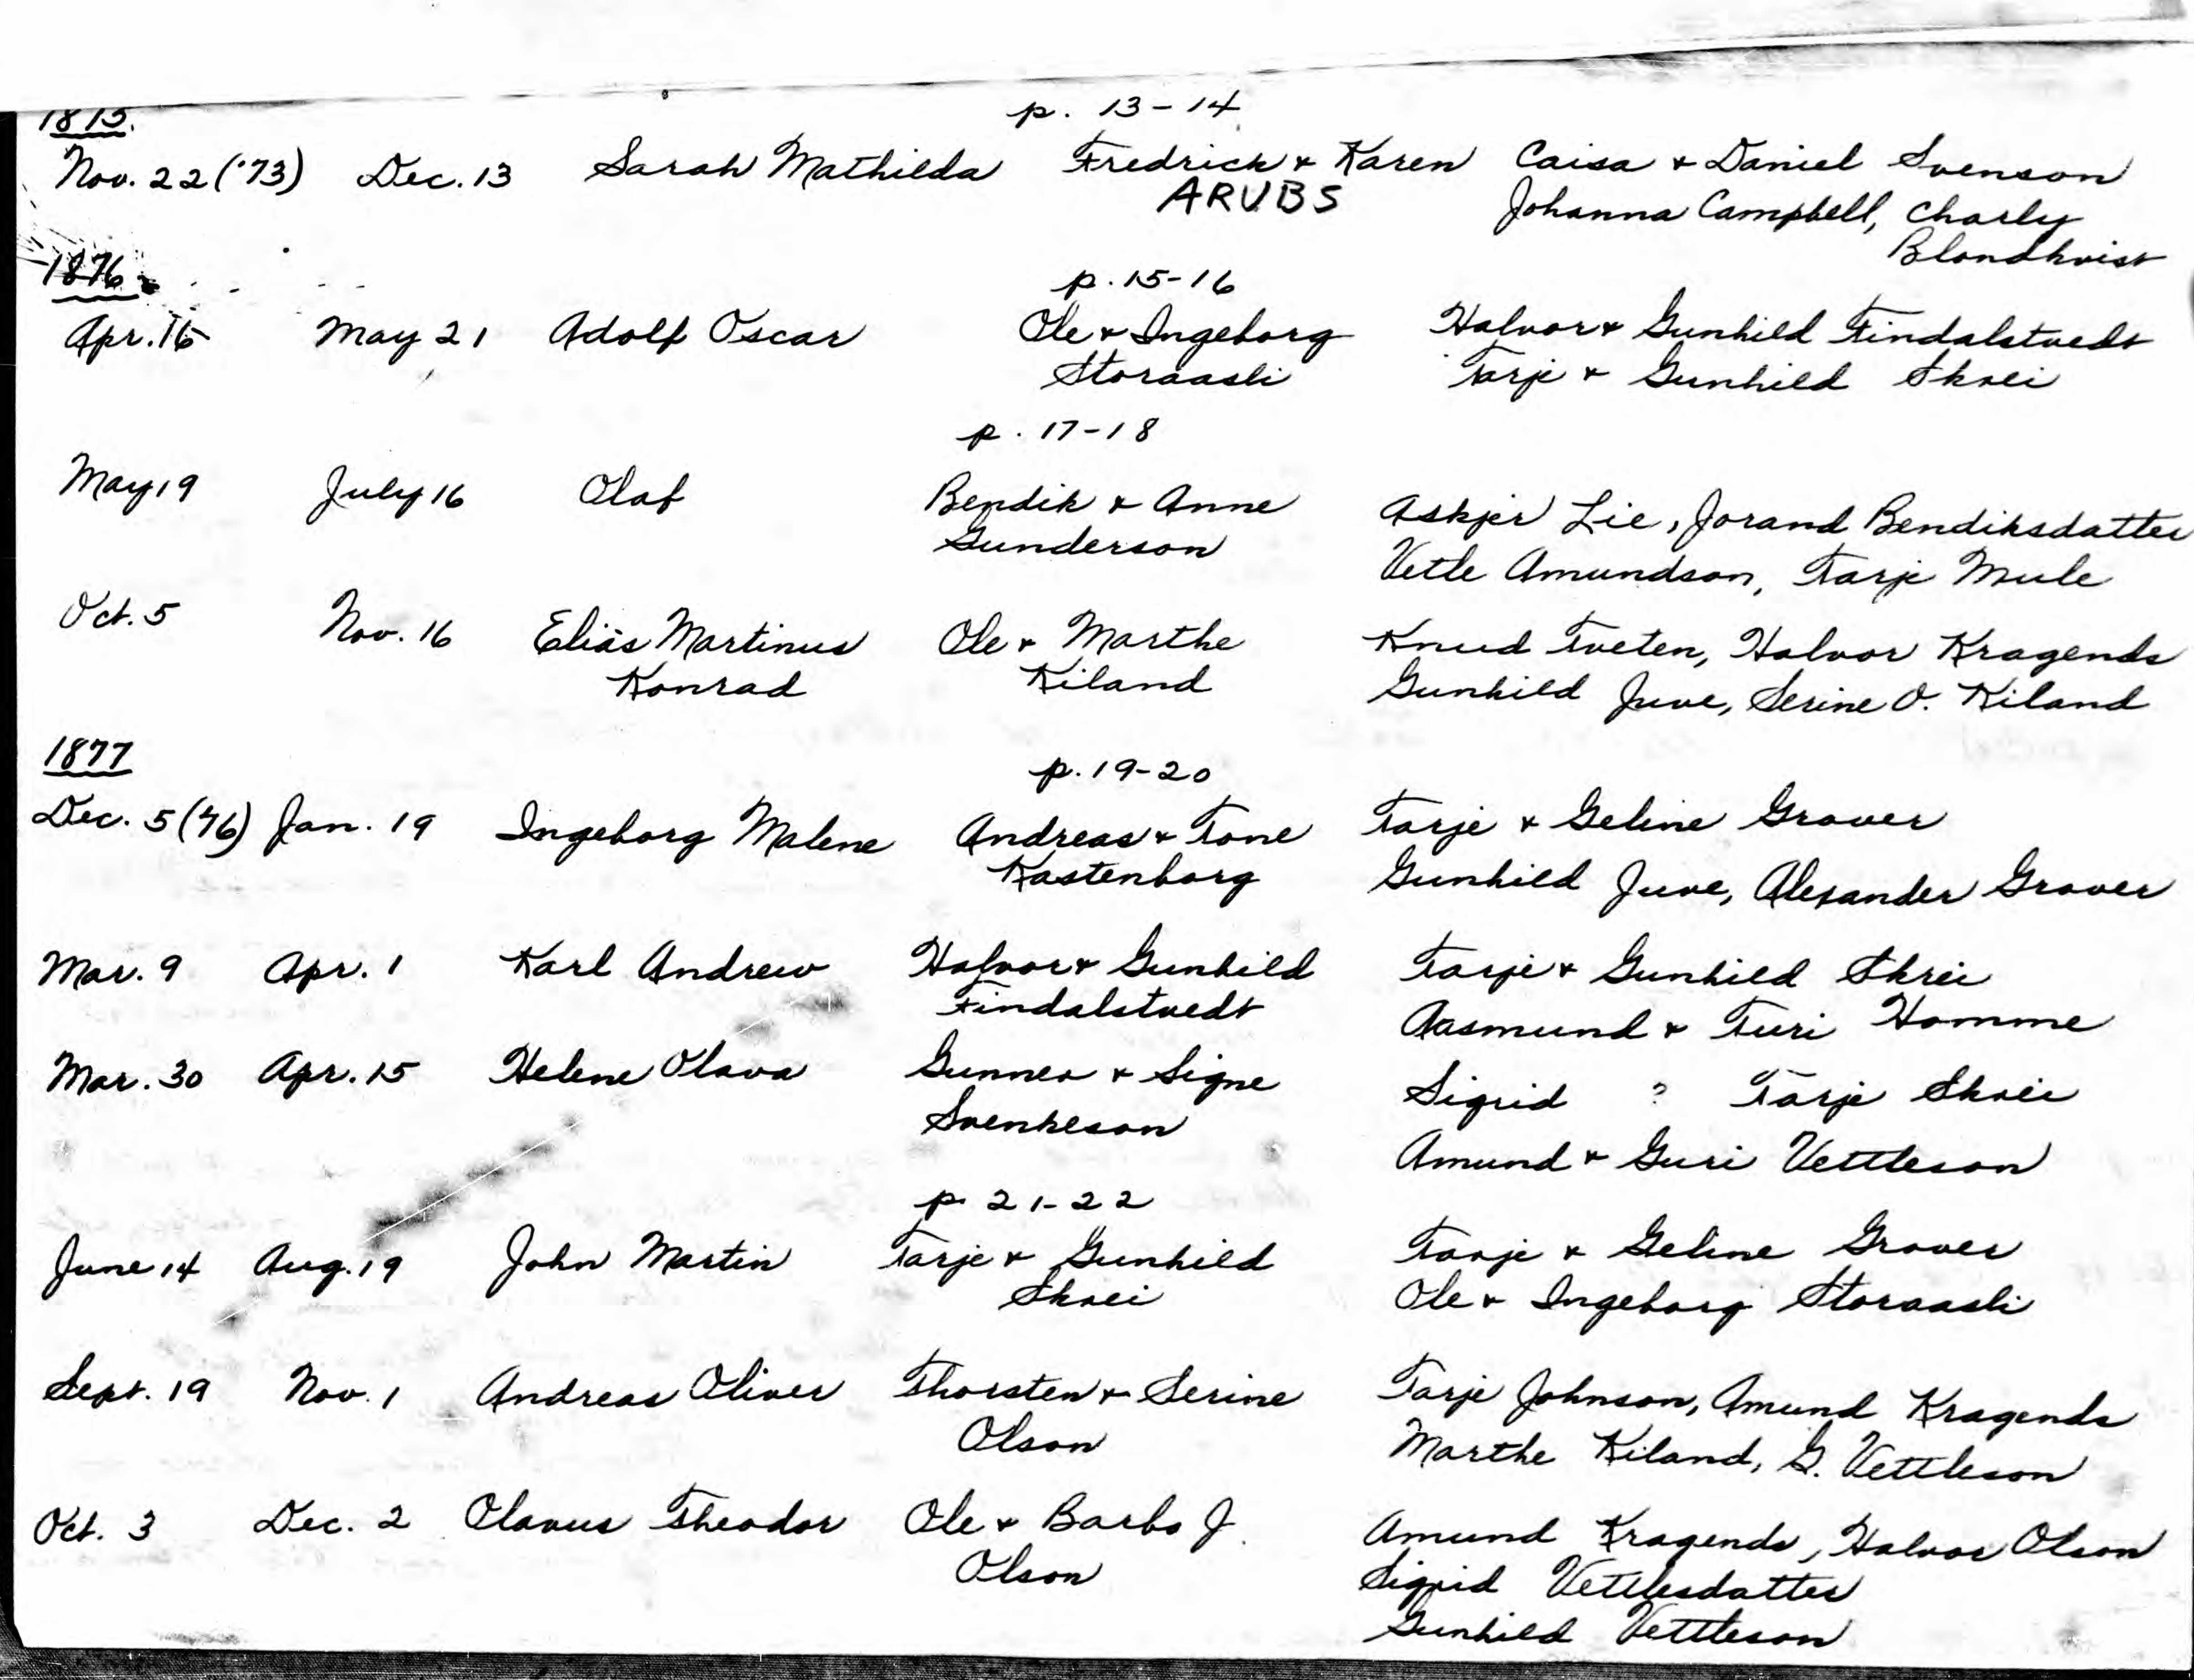 1875.
p. 13-14
Nov. 22 ('73) Dec. 13 Sarah Mathilda Fredrick + Karen Caisa + Daniel Svenson
ARUBS Johanna Campbell, Charly
Blondkvist
1876
p. 15-16
Apr. 16 May 21 Adolf Oscar Ole + Ingeborg Halvor + Gunhild Findalstvedt
Storaasli Tarje + Gunhild Skrei
p. 17-18
May 19 July 16 Olaf Bendik + Anne Askjer Lie, Jorand Bendiksdatter
Gunderson Vetle Amundson, Tarje Mule
Oct. 5 Nov. 16 Elias Martinus Ole + Marthe Knud Tveten, Halvor Kragends
Konrad Kiland Gunhild Juve, Serine O. Kiland
1877
p. 19-20
Dec. 5 ('76) Jan. 19 Ingeborg Malene Andreas + Tone Tarje + Geline Grover
Kastenborg Gunhild Juve, Alexander Grover
Mar. 9 Apr. 1 Karl Andrew Halvor + Gunhild Tarje + Gunhild Skrei
Findalstvedt Aasmund + Turi Homme
Mar. 30 Apr. 15 Helene Olava Gunner + Signe Sigrid ? Tarje Skrei
Svenkeson Amund + Guri Vettleson
p. 21-22
June 14 Aug. 19 John Martin Tarje + Gunhild Tarje + Geline Grover
Skrei Ole + Ingeborg Storaasli
Sept. 19 Nov. 1 Andreas Oliver Thorsten + Serine Tarje Johnson, Amund Kragends
Olson Marthe Kiland, G. Vettleson
Oct. 3 Dec. 2 Olavus Theodor Ole + Barbo J. Amund Kragends, Halvor Olson
Olson Sigrid Vettlesdatter
Gunhild Vettleson